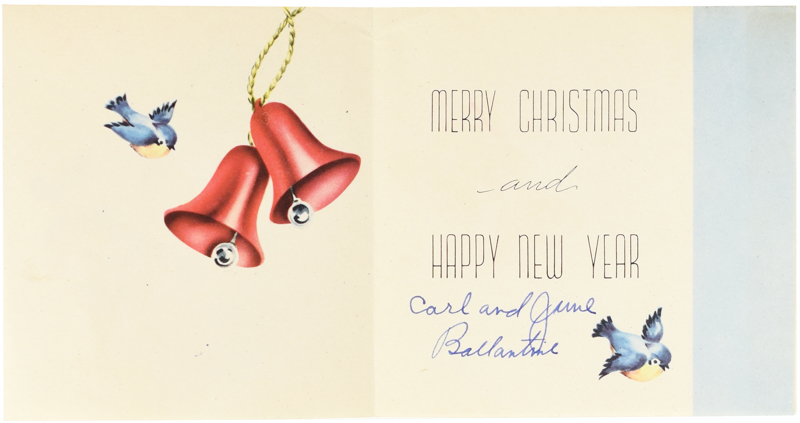 MERRY CHRISTMAS
and
HAPPY NEW YEAR
Carl and June
Ballantine